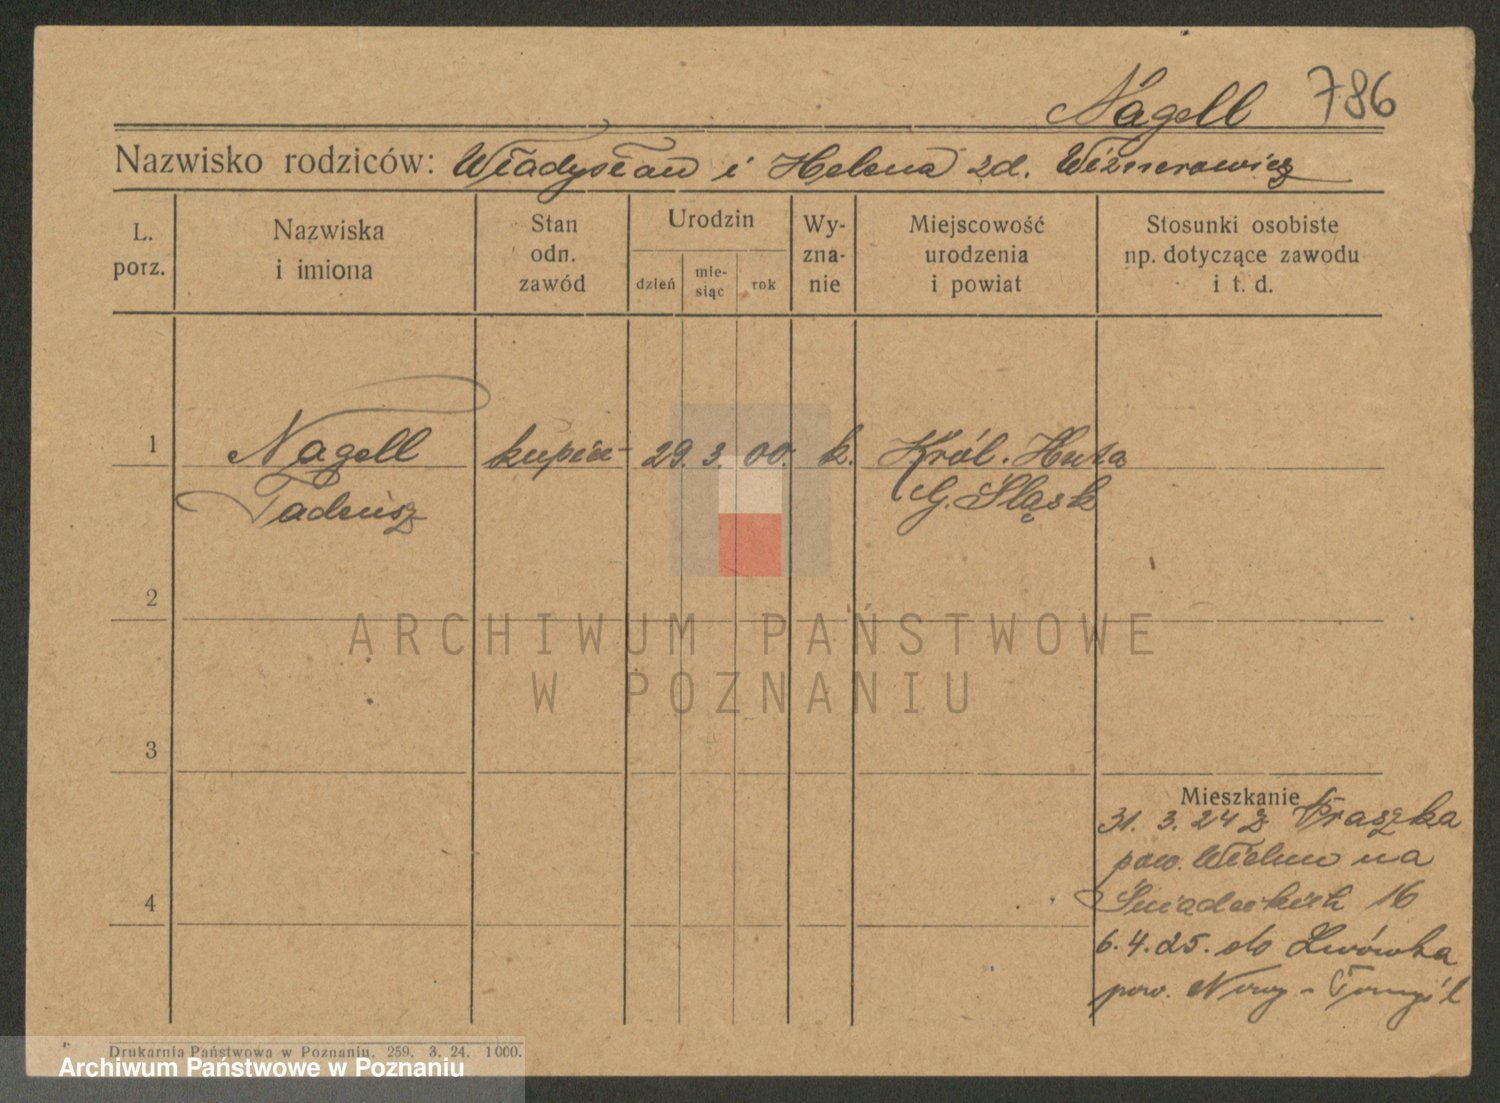 Nagell 786
Nazwisko rodziców: Władysław i Helena zd. Wiznerowicz
L. porz.
Nazwiska i imiona
Stan odn. zawód
Urodzin
dzień
mie-siąc
rok
Wy-zna-nie
Miejscowość urodzenia i powiat
Stosunki osobiste np. dotyczące zawodu i t. d.
1 Nagell kupiec 29. 3. 00. k. Król. Huta
Tadeusz G. Śląsk
2
ARCHIWUM PAŃSTWOWE
W POZNANIU
3
Mieszkanie
31. 3. 24 z Praszka
pow. Wieluń na
4 Śniadeckich 16
6. 4. 25. do Lwówka
pow. Nowy-Tomyśl
Drukarnia Państwowa w Poznaniu. 259. 3. 24. 1000.
Archiwum Państwowe w Poznaniu